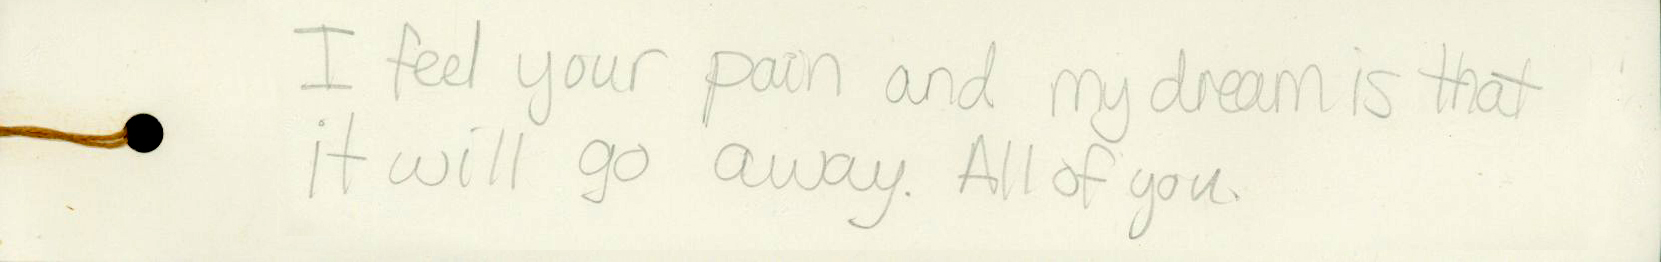 I feel your pain and my dream is that
it will go away. All of you.